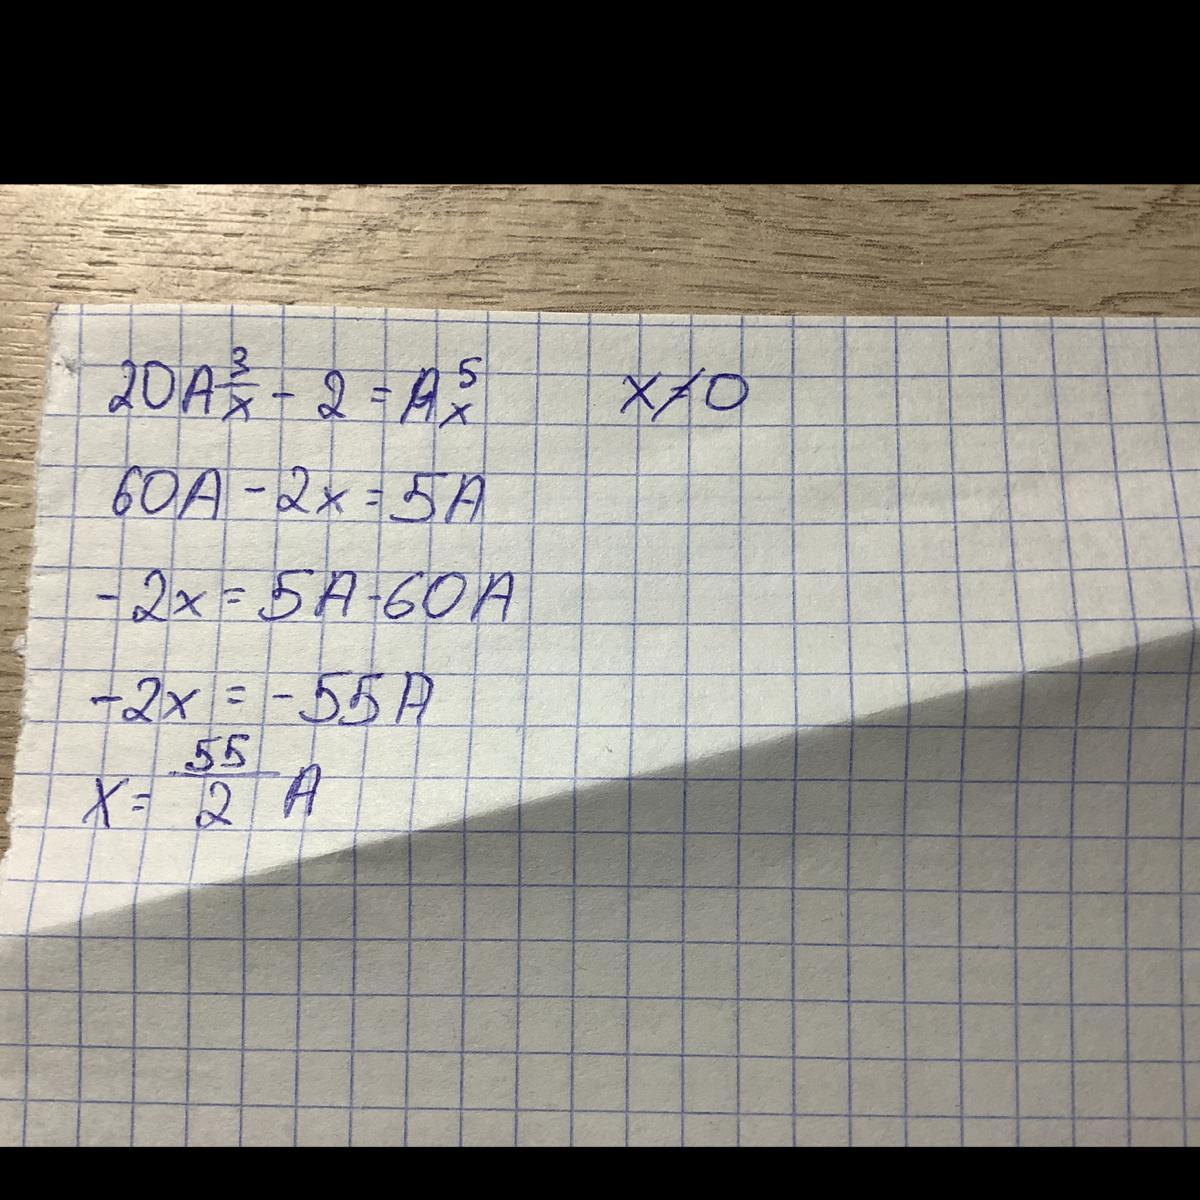 20A 3/x - 2 = A 5/x x≠0
60A - 2x = 5A
-2x = 5A - 60A
-2x = -55A
x = 55/2 A